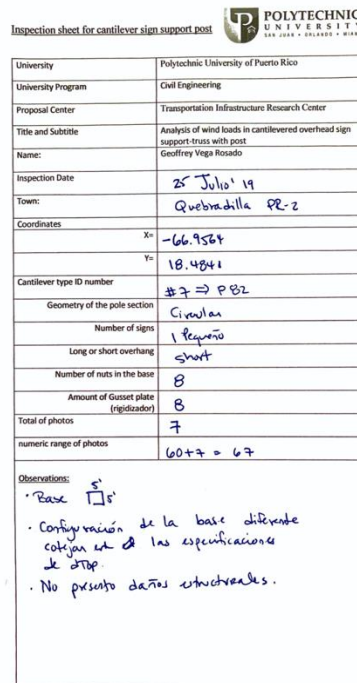 Inspection sheet for cantilever sign support post
POLYTECHNIC
UNIVERSITY
SAN JUAN • ORLANDO • MIAMI
University Polytechnic University of Puerto Rico
University Program Civil Engineering
Proposal Center Transportation Infrastructure Research Center
Title and Subtitle Analysis of wind loads in cantilevered overhead sign
support-truss with post
Name: Geoffrey Vega Rosado
Inspection Date 25 Julio' 19
Town: Quebradilla PR-2
Coordinates
X= -66.9564
Y= 18.4841
Cantilever type ID number #7 ⇒ P82
Geometry of the pole section Circular
Number of signs 1 Pequeño
Long or short overhang short
Number of nuts in the base 8
Amount of Gusset plate 8
(rigidizador)
Total of photos 7
numeric range of photos 60+7 = 67
Observations:
5'
• Base 5'
• Configuración de la base diferente
cotejar las especificaciones
de DTOP.
• No presento daños estructurales.